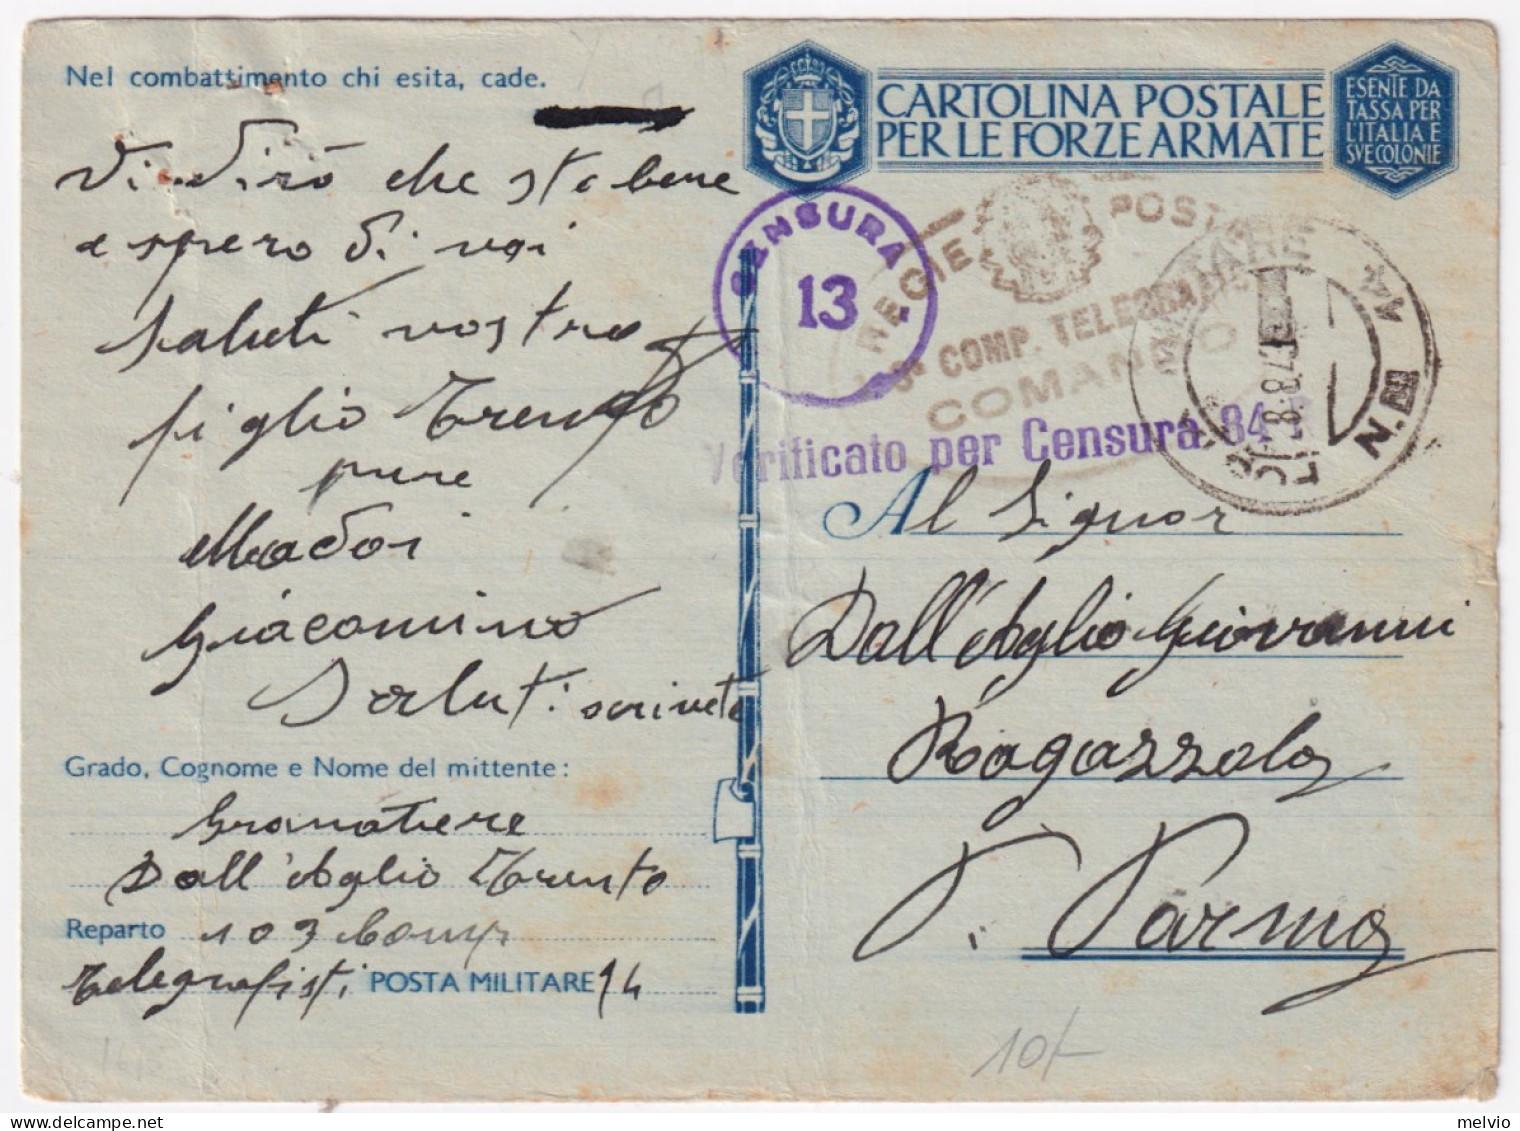 Nel combattimento chi esita, cade.
Vi dirò che sto bene
e spero di voi
saluti vostro
figlio Trento
pure
Madoi
Giacomino
Saluti scrivete
Grado, Cognome e Nome del mittente:
Granatiere
Dall'Aglio Trento
Reparto 103 Comp
Telegrafisti POSTA MILITARE 14
CARTOLINA POSTALE
PER LE FORZE ARMATE
ESENTE DA
TASSA PER
L'ITALIA E
SVE COLONIE
CENSURA
13
REGIE POSTE
3ª COMP. TELEGRAFISTI
COMANDO
Verificato per Censura 84
MILITARE
N.
Al Signor
Dall'Aglio Giovanni
Ragazzola
P. Parma
10/-